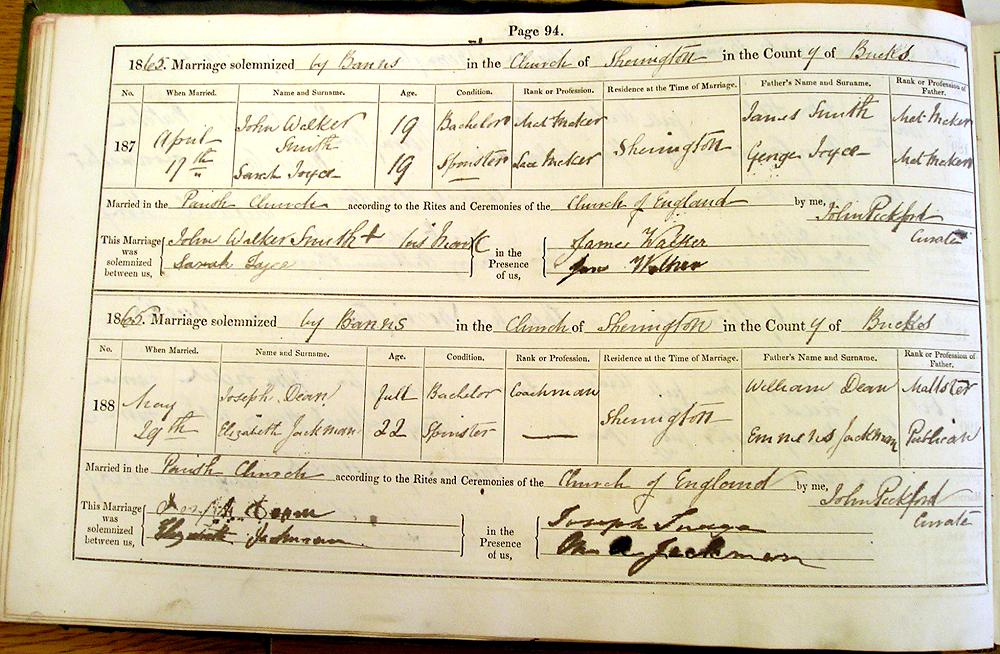 Page 94.
1865. Marriage solemnized by Banns in the Church of Sherington in the County of Bucks
No. When Married. Name and Surname. Age. Condition. Rank or Profession. Residence at the Time of Marriage. Father's Name and Surname. Rank or Profession of Father.
187 April 17th John Walker Smith 19 Bachelor Mat Maker Sherington James Smith Mat Maker
Sarah Joyce 19 Spinster Lace Maker George Joyce Mat Maker
Married in the Parish Church according to the Rites and Ceremonies of the Church of England by me, John Pickford
Curate
This Marriage was solemnized between us, John Walker Smith + his mark in the Presence of us, James Walker
Sarah Joyce Walker
1865. Marriage solemnized by Banns in the Church of Sherington in the County of Bucks
No. When Married. Name and Surname. Age. Condition. Rank or Profession. Residence at the Time of Marriage. Father's Name and Surname. Rank or Profession of Father.
188 May 29th Joseph Dean full Bachelor Coachman Sherington William Dean Maltster
Elizabeth Jackman 22 Spinster — Jackman Publican
Married in the Parish Church according to the Rites and Ceremonies of the Church of England by me, John Pickford
Curate
This Marriage was solemnized between us, Joseph Dean in the Presence of us, Joseph
Elizabeth Jackman Jackman